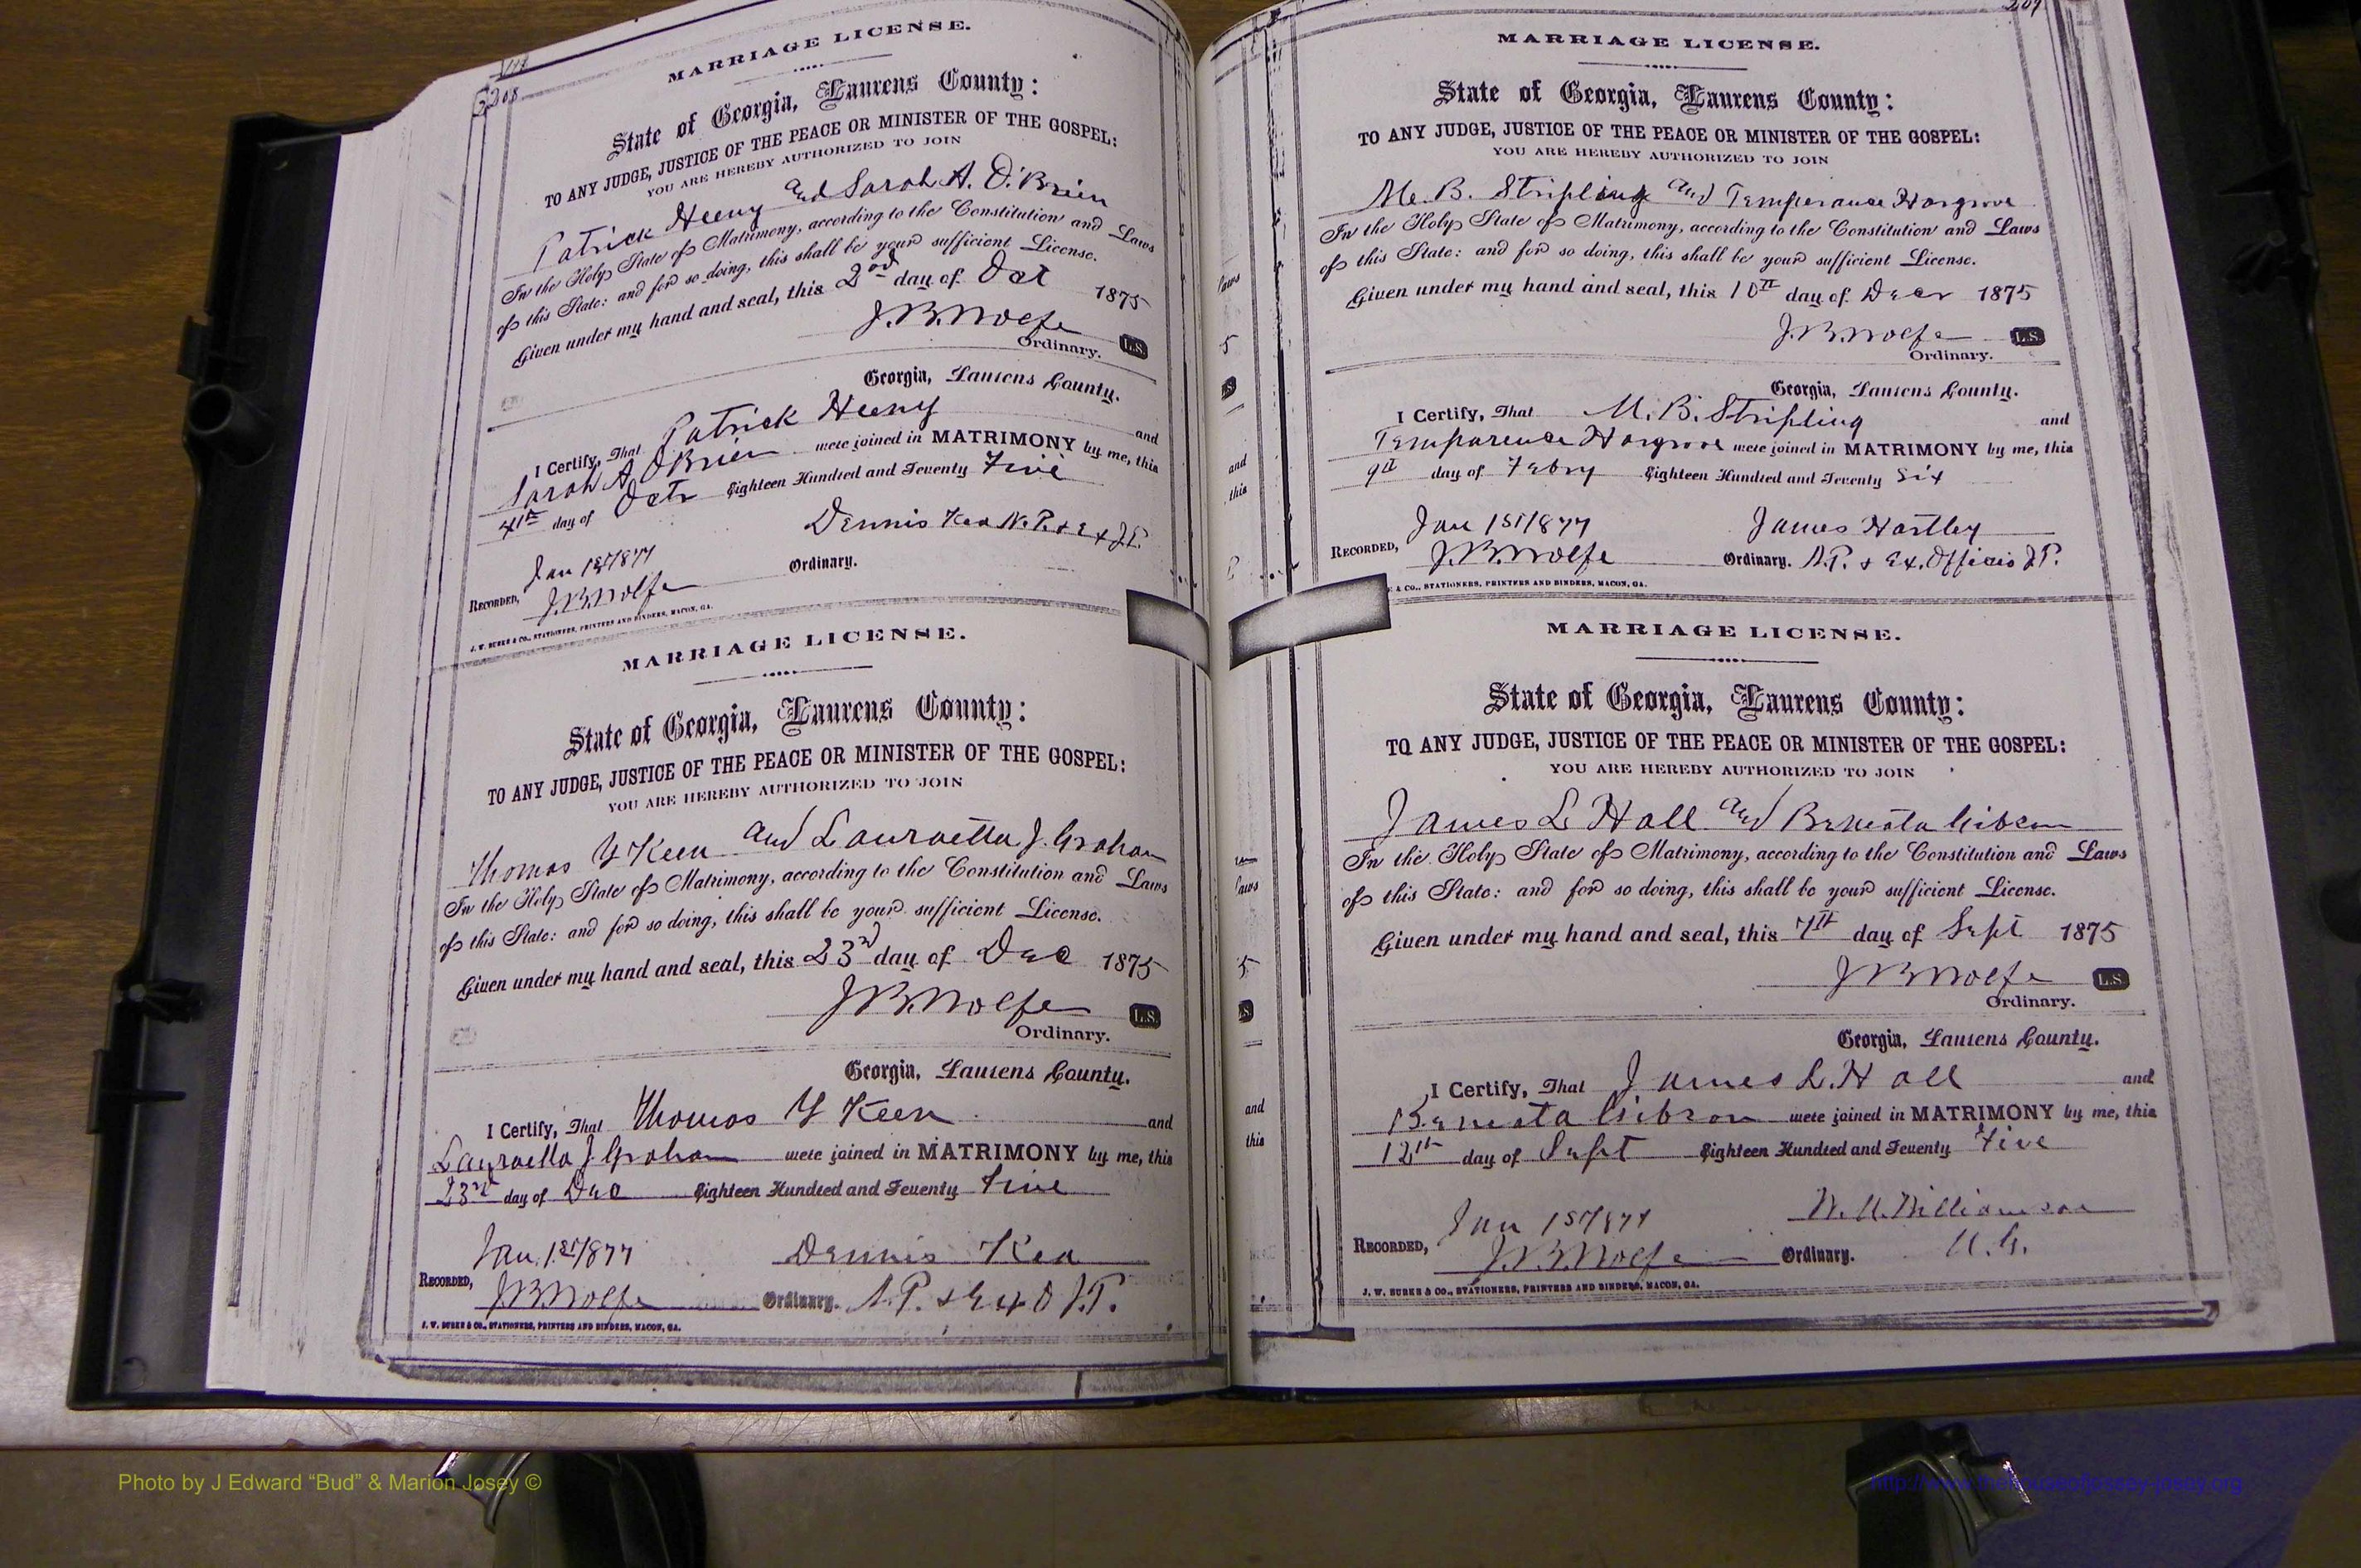 208
MARRIAGE LICENSE.
State of Georgia, Laurens County:
TO ANY JUDGE, JUSTICE OF THE PEACE OR MINISTER OF THE GOSPEL:
YOU ARE HEREBY AUTHORIZED TO JOIN
Patrick Heeny and Sarah A. O'Brien
In the Holy State of Matrimony, according to the Constitution and Laws
of this State: and for so doing, this shall be your sufficient License.
Given under my hand and seal, this 2nd day of Oct 1875
J.B. Wolfe L.S.
Ordinary.
Georgia, Laurens County.
I Certify, That Patrick Heeny and
Sarah A O'Brien were joined in MATRIMONY by me, this
4th day of Octr Eighteen Hundred and Seventy Five
Dennis Kea N.P. & Ex J.P.
Jan 1st 1877
RECORDED, J.B. Wolfe Ordinary.
J. W. BURKE & CO., STATIONERS, PRINTERS AND BINDERS, MACON, GA.
MARRIAGE LICENSE.
State of Georgia, Laurens County:
TO ANY JUDGE, JUSTICE OF THE PEACE OR MINISTER OF THE GOSPEL:
YOU ARE HEREBY AUTHORIZED TO JOIN
Thomas Y Keen and Lauraetta J. Graham
In the Holy State of Matrimony, according to the Constitution and Laws
of this State: and for so doing, this shall be your sufficient License.
Given under my hand and seal, this 23rd day of Dec 1875
J B. Wolfe L.S.
Ordinary.
Georgia, Laurens County.
I Certify, That Thomas Y Keen and
Lauraetta J Graham were joined in MATRIMONY by me, this
23rd day of Dec Eighteen Hundred and Seventy Five
Jan. 1st 1877 Dennis Kea
RECORDED, J B. Wolfe Ordinary. N.P. & Ex O J.P.
J. W. BURKE & CO., STATIONERS, PRINTERS AND BINDERS, MACON, GA.
laws
5
and
this
laws
5
and
this
209
MARRIAGE LICENSE.
State of Georgia, Laurens County:
TO ANY JUDGE, JUSTICE OF THE PEACE OR MINISTER OF THE GOSPEL:
YOU ARE HEREBY AUTHORIZED TO JOIN
M. B. Stripling and Temperance Hargrove
In the Holy State of Matrimony, according to the Constitution and Laws
of this State: and for so doing, this shall be your sufficient License.
Given under my hand and seal, this 10th day of Decr 1875
J B. Wolfe L.S.
Ordinary.
Georgia, Laurens County.
I Certify, That M. B. Stripling and
Temparence Hargrove were joined in MATRIMONY by me, this
9th day of Febry Eighteen Hundred and Seventy Six
Jan 1st 1877 James Hartley
RECORDED, J. B. Wolfe Ordinary. N.P. & Ex. Officio J.P.
& CO., STATIONERS, PRINTERS AND BINDERS, MACON, GA.
MARRIAGE LICENSE.
State of Georgia, Laurens County:
TO ANY JUDGE, JUSTICE OF THE PEACE OR MINISTER OF THE GOSPEL:
YOU ARE HEREBY AUTHORIZED TO JOIN
James L Hall and Beneata Gibson
In the Holy State of Matrimony, according to the Constitution and Laws
of this State: and for so doing, this shall be your sufficient License.
Given under my hand and seal, this 7th day of Sept 1875
J B Wolfe L.S.
Ordinary.
Georgia, Laurens County.
I Certify, That James L. Hall and
Beneata Gibson were joined in MATRIMONY by me, this
12th day of Sept Eighteen Hundred and Seventy Five
Jan 1st 1877 Williamson
RECORDED, J. B. Wolfe Ordinary. M.G.
J. W. BURKE & CO., STATIONERS, PRINTERS AND BINDERS, MACON, GA.
Photo by J Edward “Bud” & Marion Josey ©
http://www.thehouseofjossey-josey.org